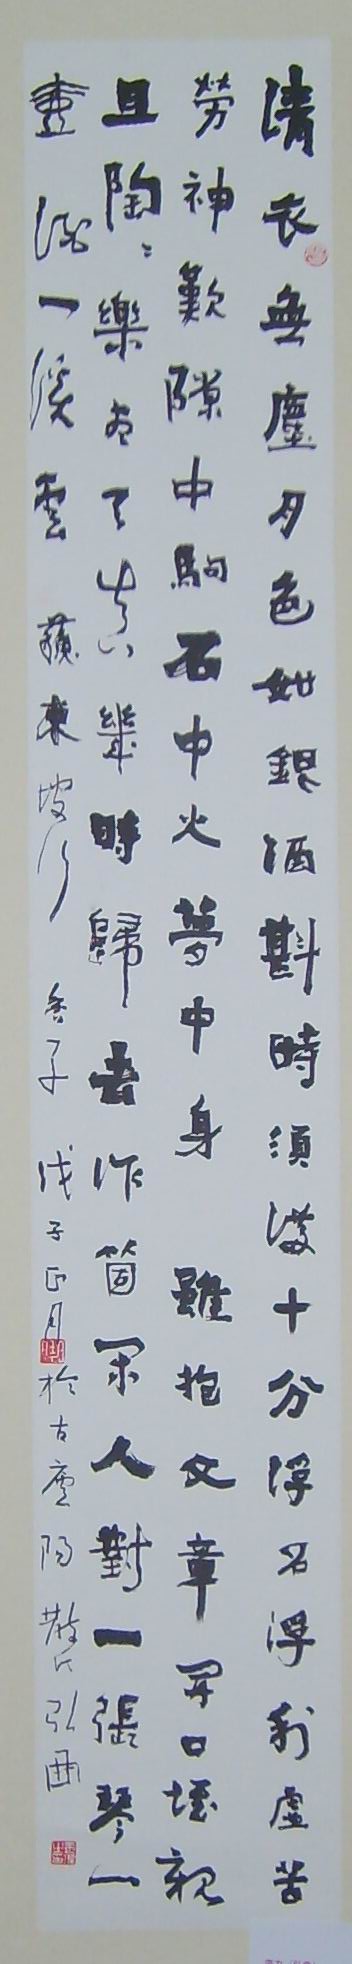 清夜無塵月色如銀酒斟時須滿十分浮名浮利虛苦
勞神歎隙中駒石中火夢中身 雖抱文章開口誰親
且陶〻樂盡天真幾時歸去作箇閑人對一張琴一
壺酒一溪雲 蘇東坡行香子 戊子正月於古廬陽